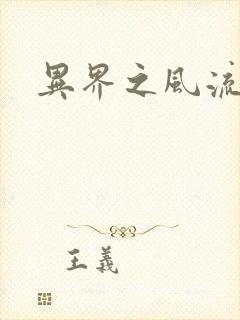 異界之風流
王義